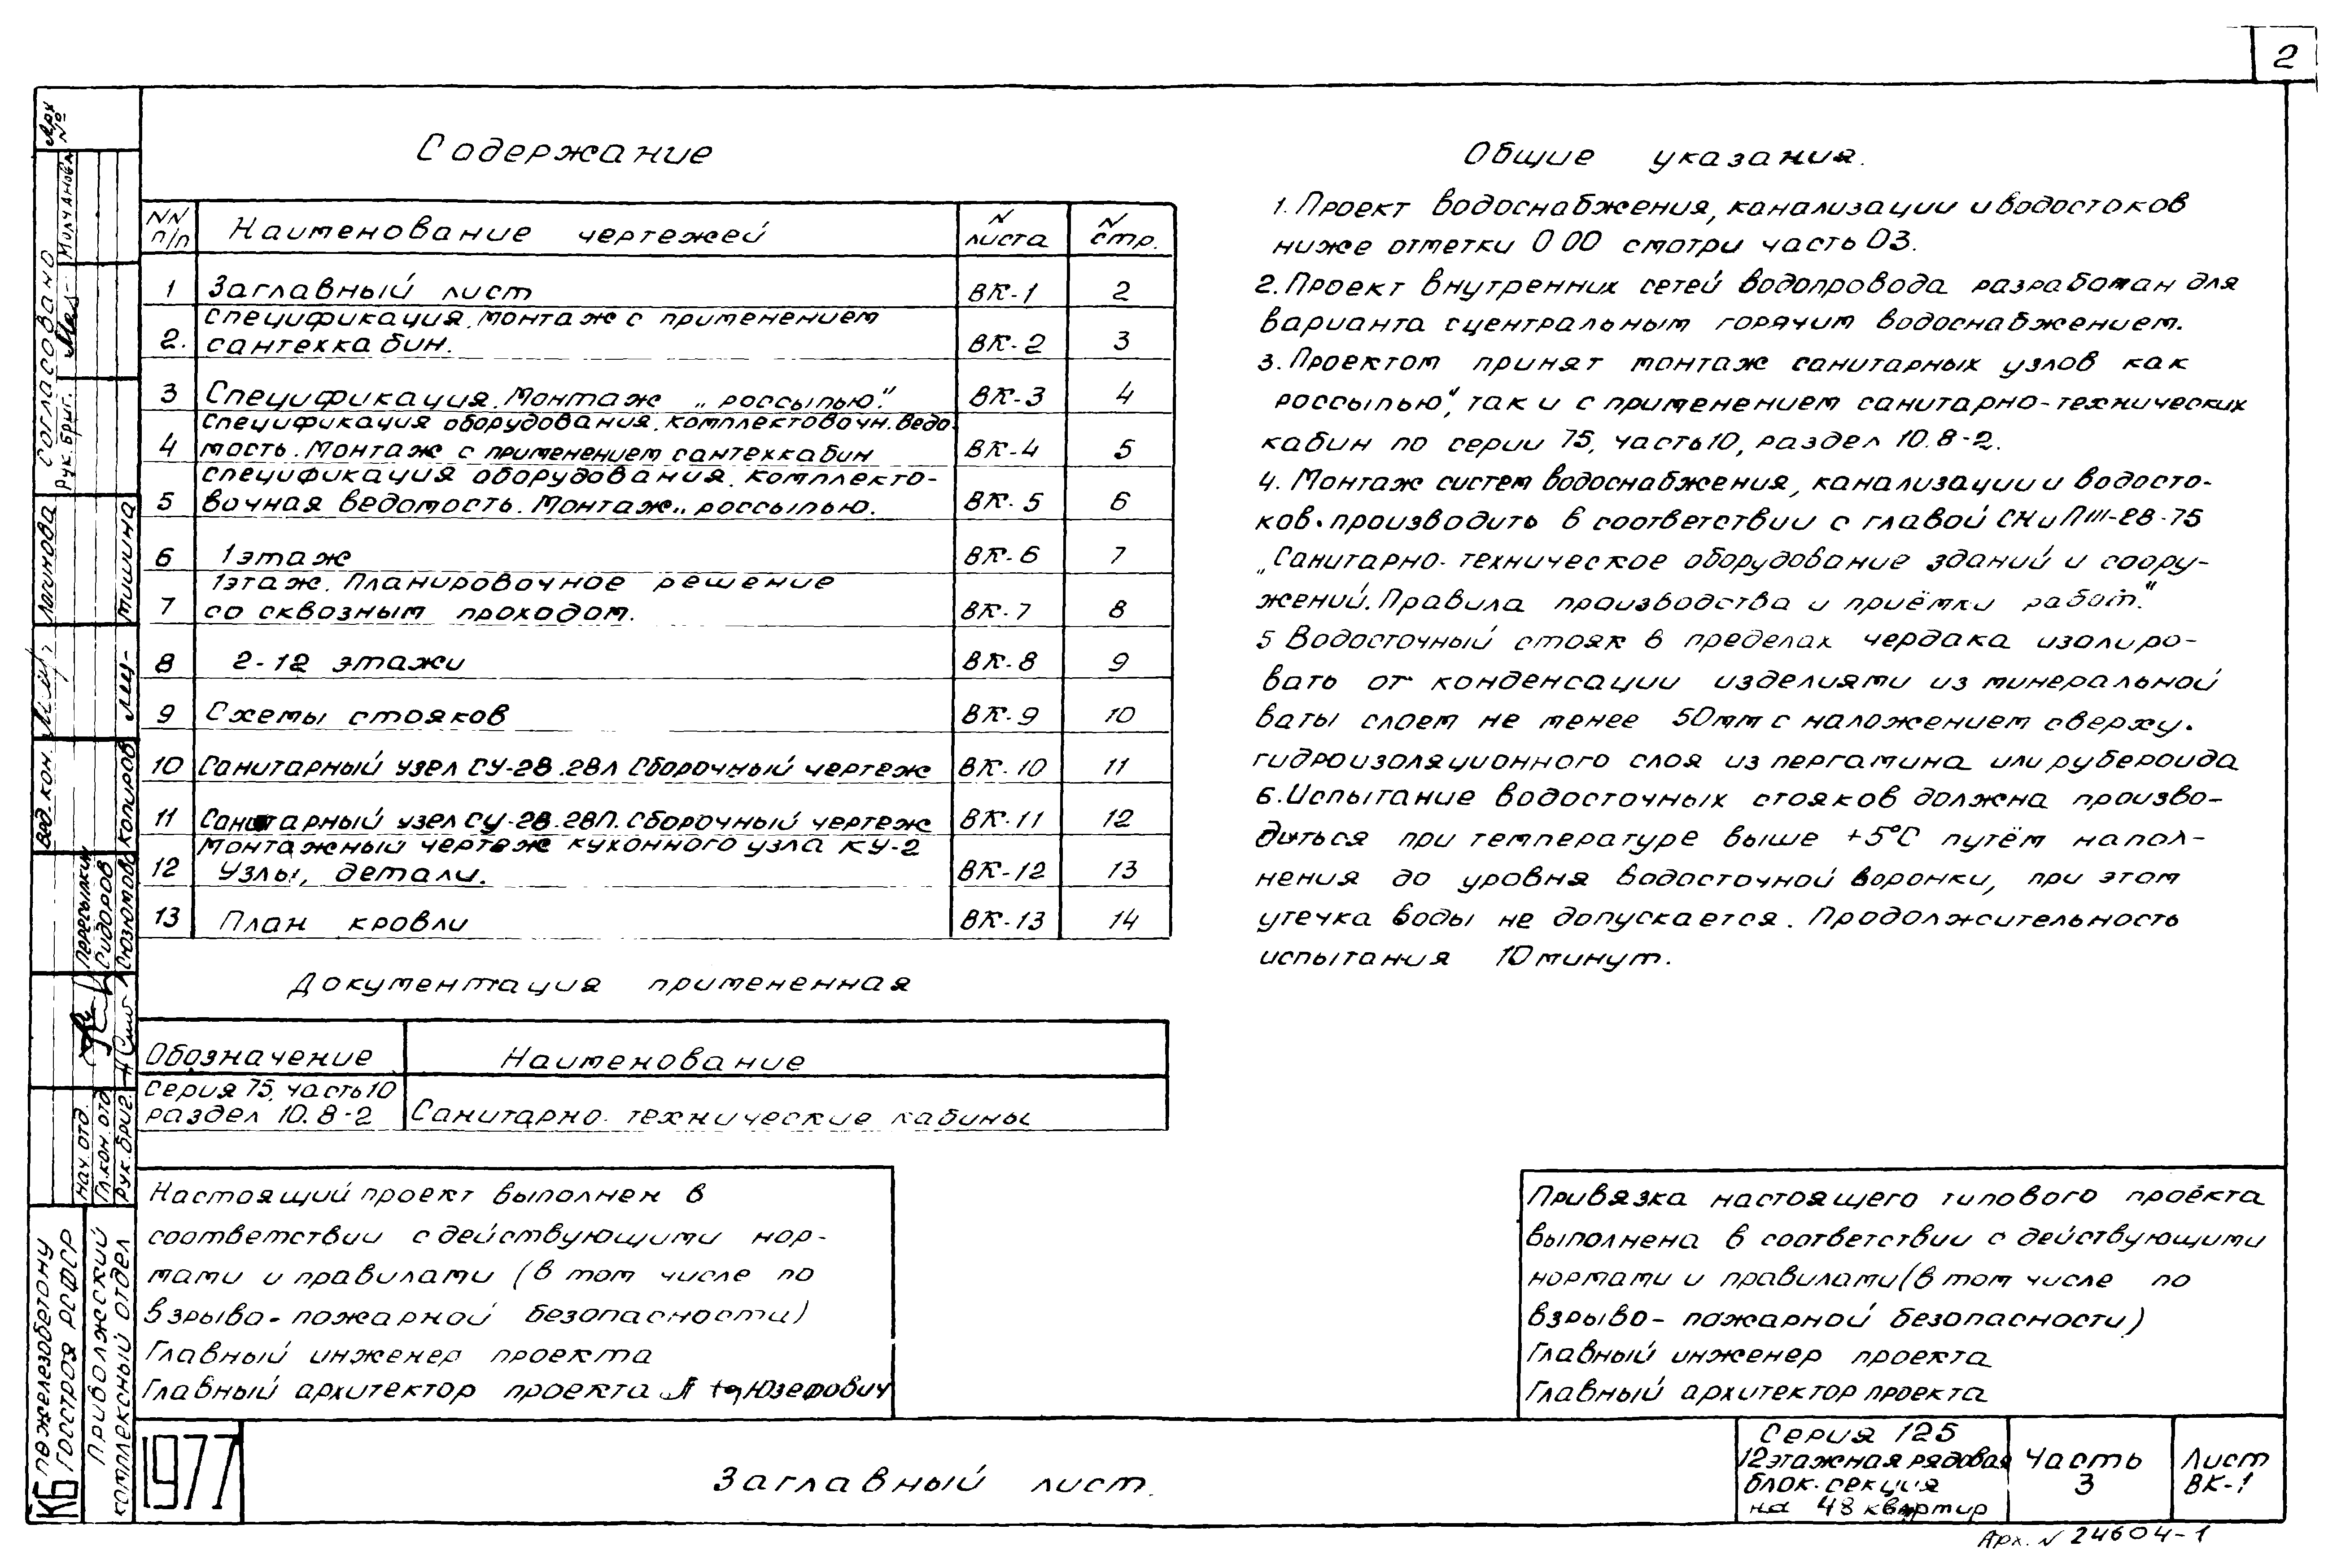 2
Содержание
NN п/п | Наименование чертежей | N листа | N стр.
1 | Заглавный лист | ВК-1 | 2
2. | Спецификация. Монтаж с применением
сантехкабин. | ВК-2 | 3
3 | Спецификация. Монтаж „россыпью." | ВК-3 | 4
4 | Спецификация оборудования. Комплектовочн. ведо-
мость. Монтаж с применением сантехкабин | ВК-4 | 5
5 | Спецификация оборудования. Комплекто-
вочная ведомость. Монтаж „россыпью. | ВК-5 | 6
6 | 1 этаж | ВК-6 | 7
7 | 1 этаж. Планировочное решение
со сквозным проходом. | ВК-7 | 8
8 | 2-12 этажи | ВК-8 | 9
9 | Схемы стояков | ВК-9 | 10
10 | Санитарный узел СУ-28.28л Сборочный чертеж | ВК-10 | 11
11 | Санитарный узел СУ-28.28П. Сборочный чертеж | ВК-11 | 12
12 | Монтажный чертеж кухонного узла КУ-2
Узлы, детали. | ВК-12 | 13
13 | План кровли | ВК-13 | 14
Документация примененная
Обозначение | Наименование
Серия 75, часть 10
раздел 10.8-2 | Санитарно-технические кабины
Настоящий проект выполнен в
соответствии с действующими нор-
мами и правилами (в том числе по
взрыво-пожарной безопасности)
Главный инженер проекта
Главный архитектор проекта Юзефович
Общие указания.
1. Проект водоснабжения, канализации и водостоков
ниже отметки 0 00 смотри часть 03.
2. Проект внутренних сетей водопровода разработан для
варианта с центральным горячим водоснабжением.
3. Проектом принят монтаж санитарных узлов как
россыпью", так и с применением санитарно-технических
кабин по серии 75, часть 10, раздел 10.8-2.
4. Монтаж систем водоснабжения, канализации и водосто-
ков. производить в соответствии с главой СНиП III-28-75
„Санитарно-техническое оборудование зданий и соору-
жений. Правила производства и приёмки работ."
5 Водосточный стояк в пределах чердака изолиро-
вать от конденсации изделиями из минеральной
ваты слоем не менее 50мм с наложением сверху.
гидроизоляционного слоя из пергамина или рубероида
6. Испытание водосточных стояков должна произво-
диться при температуре выше +5°С путём напол-
нения до уровня водосточной воронки, при этом
утечка воды не допускается. Продолжительность
испытания 10 минут.
Привязка настоящего типового проекта
выполнена в соответствии с действующими
нормами и правилами (в том числе по
взрыво-пожарной безопасности)
Главный инженер проекта
Главный архитектор проекта
1977
Заглавный лист.
Серия 125
12 этажная рядовая
блок-секция
на 48 квартир
Часть
3
Лист
ВК-1
Арх. N 24604-1
Арх №
Согласовано
Рук. бриг. Молчанова
Вед. кон. Логинова
Копировал Мишина
Нач. отд. Перепелкин
Гл. кон. отд. Сидоров
Рук. бриг. Сюзюмова
КБ по железобетону
Госстроя РСФСР
Приволжский
комплексный отдел